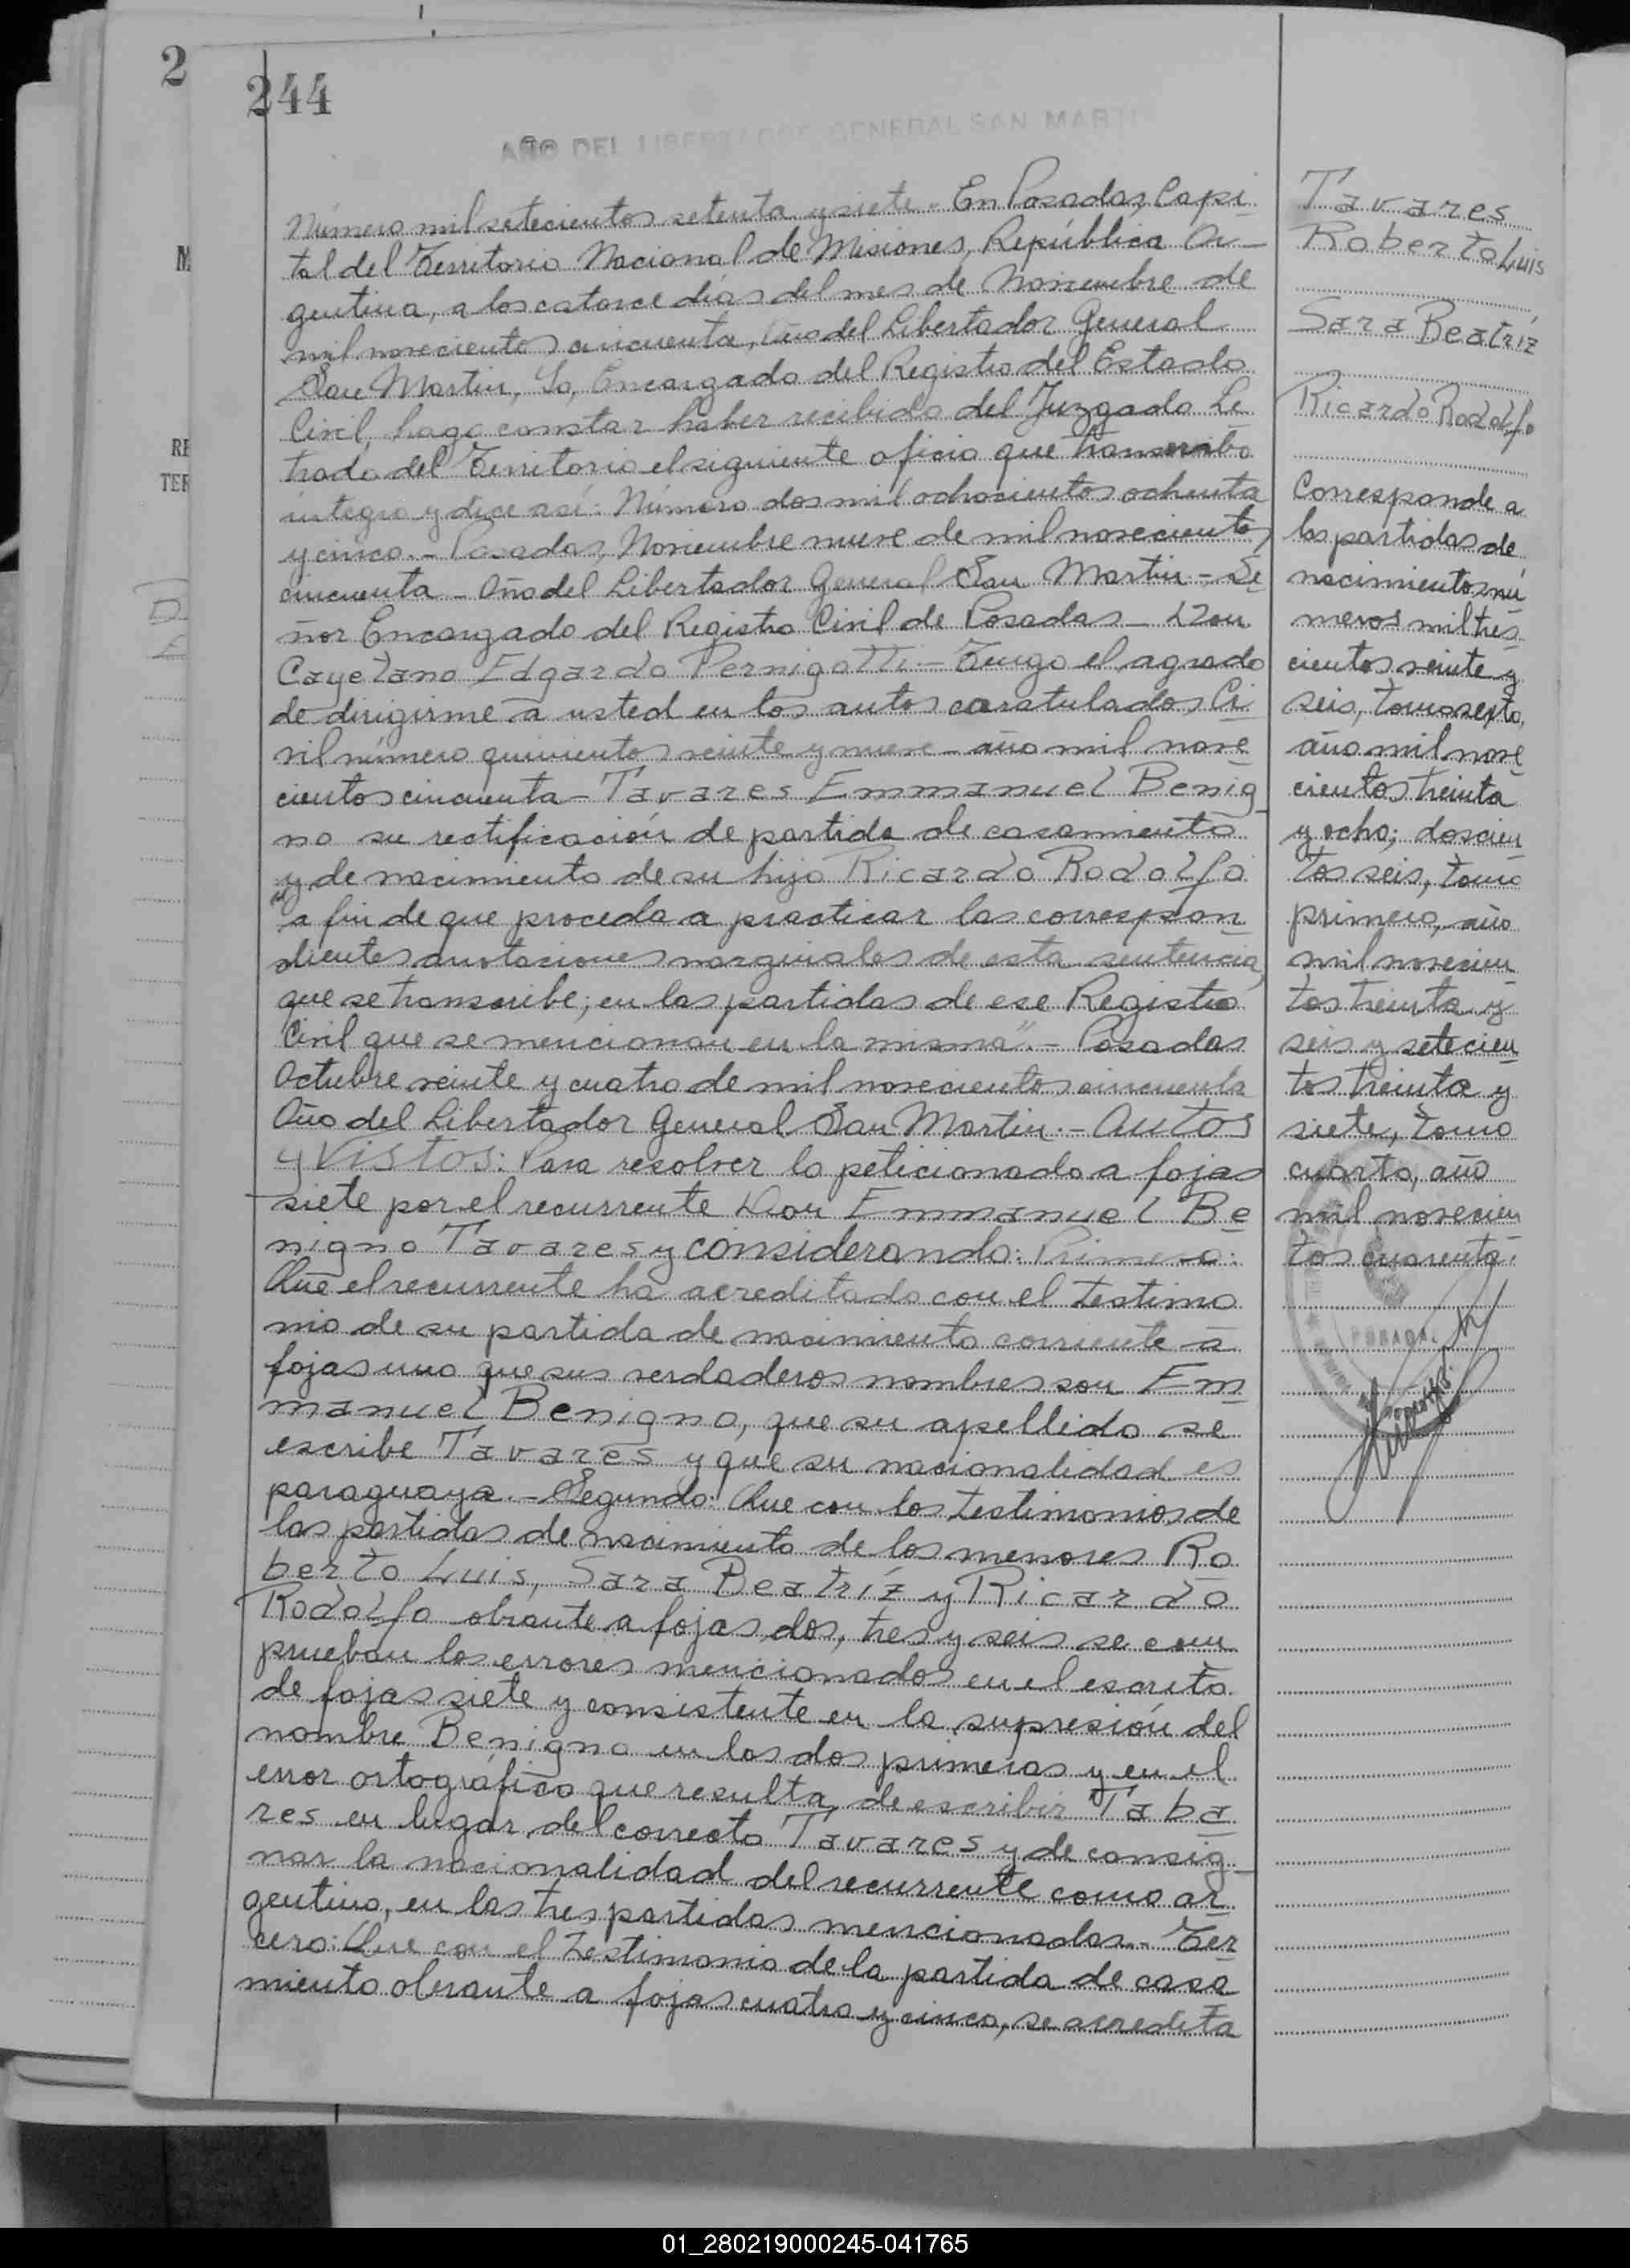 2
244
AÑO DEL LIBERTADOR GENERAL SAN MARTI
Número mil setecientos setenta y siete.- En Posadas, Capi
tal del Territorio Nacional de Misiones, República Ar-
gentina, a los catorce días del mes de Noviembre de
mil novecientos cincuenta, Año del Libertador General
San Martin, Yo, Encargado del Registro del Estado
Civil, hago constar haber recibido del Juzgado Le
trado del Territorio el siguiente oficio que transcribo
integro y dice así: Número dos mil ochocientos ochenta
y cinco.- Posadas, Noviembre nueve de mil novecientos
cincuenta - Año del Libertador General San Martin - Se
ñor Encargado del Registro Civil de Posadas - Don
Cayetano Edgardo Pernigotti - Tengo el agrado
de dirigirme a usted en los autos caratulados Ci
vil número quinientos veinte y nueve - año mil nove
cientos cincuenta - Tavares Emmanuel Benig-
no su rectificación de partida de casamiento
y de nacimiento de su hijo Ricardo Rodolfo
a fin de que proceda a practicar las correspon
dientes anotaciones marginales de esta sentencia,
que se transcribe; en las partidas de ese Registro
Civil que se mencionan en la misma".- Posadas
Octubre veinte y cuatro de mil novecientos cincuenta
Año del Libertador General San Martin.- Autos
y Vistos: Para resolver lo peticionado a fojas
siete por el recurrente Don Emmanuel Be
nigno Tavares y considerando: Primero:
Que el recurrente ha acreditado con el testimo
nio de su partida de nacimiento corriente a
fojas uno que sus verdaderos nombres son Em
manuel Benigno, que su apellido se
escribe Tavares y que su nacionalidad es
paraguaya.- Segundo: Que con los testimonios de
las partidas de nacimiento de los menores Ro
berto Luis, Sara Beatríz y Ricardo
Rodolfo obrante a fojas dos, tres y seis se com
prueban los errores mencionados en el escrito
de fojas siete y consistente en la supresión del
nombre Benigno en las dos primeras y en el
error ortográfico que resulta, de escribir Taba
res en lugar del correcto Tavares y de consig-
nar la nacionalidad del recurrente como ar
gentino, en las tres partidas mencionadas.- Ter
cero: Que con el testimonio de la partida de casa
miento obrante a fojas cuatro y cinco, se acredita
Tavares
Roberto Luis
Sara Beatríz
Ricardo Rodolfo
Corresponde a
las partidas de
nacimientos nú
meros mil tres
cientos veinte y
seis, tomo sexto,
año mil nove
cientos treinta
y ocho; doscien
tos seis, tomo
primero, año
mil novecien
tos treinta y
seis y setecien
tos treinta y
siete, tomo
cuarto, año
mil novecien
tos cuarenta.
POSADA
M
RE
TER
01_280219000245-041765